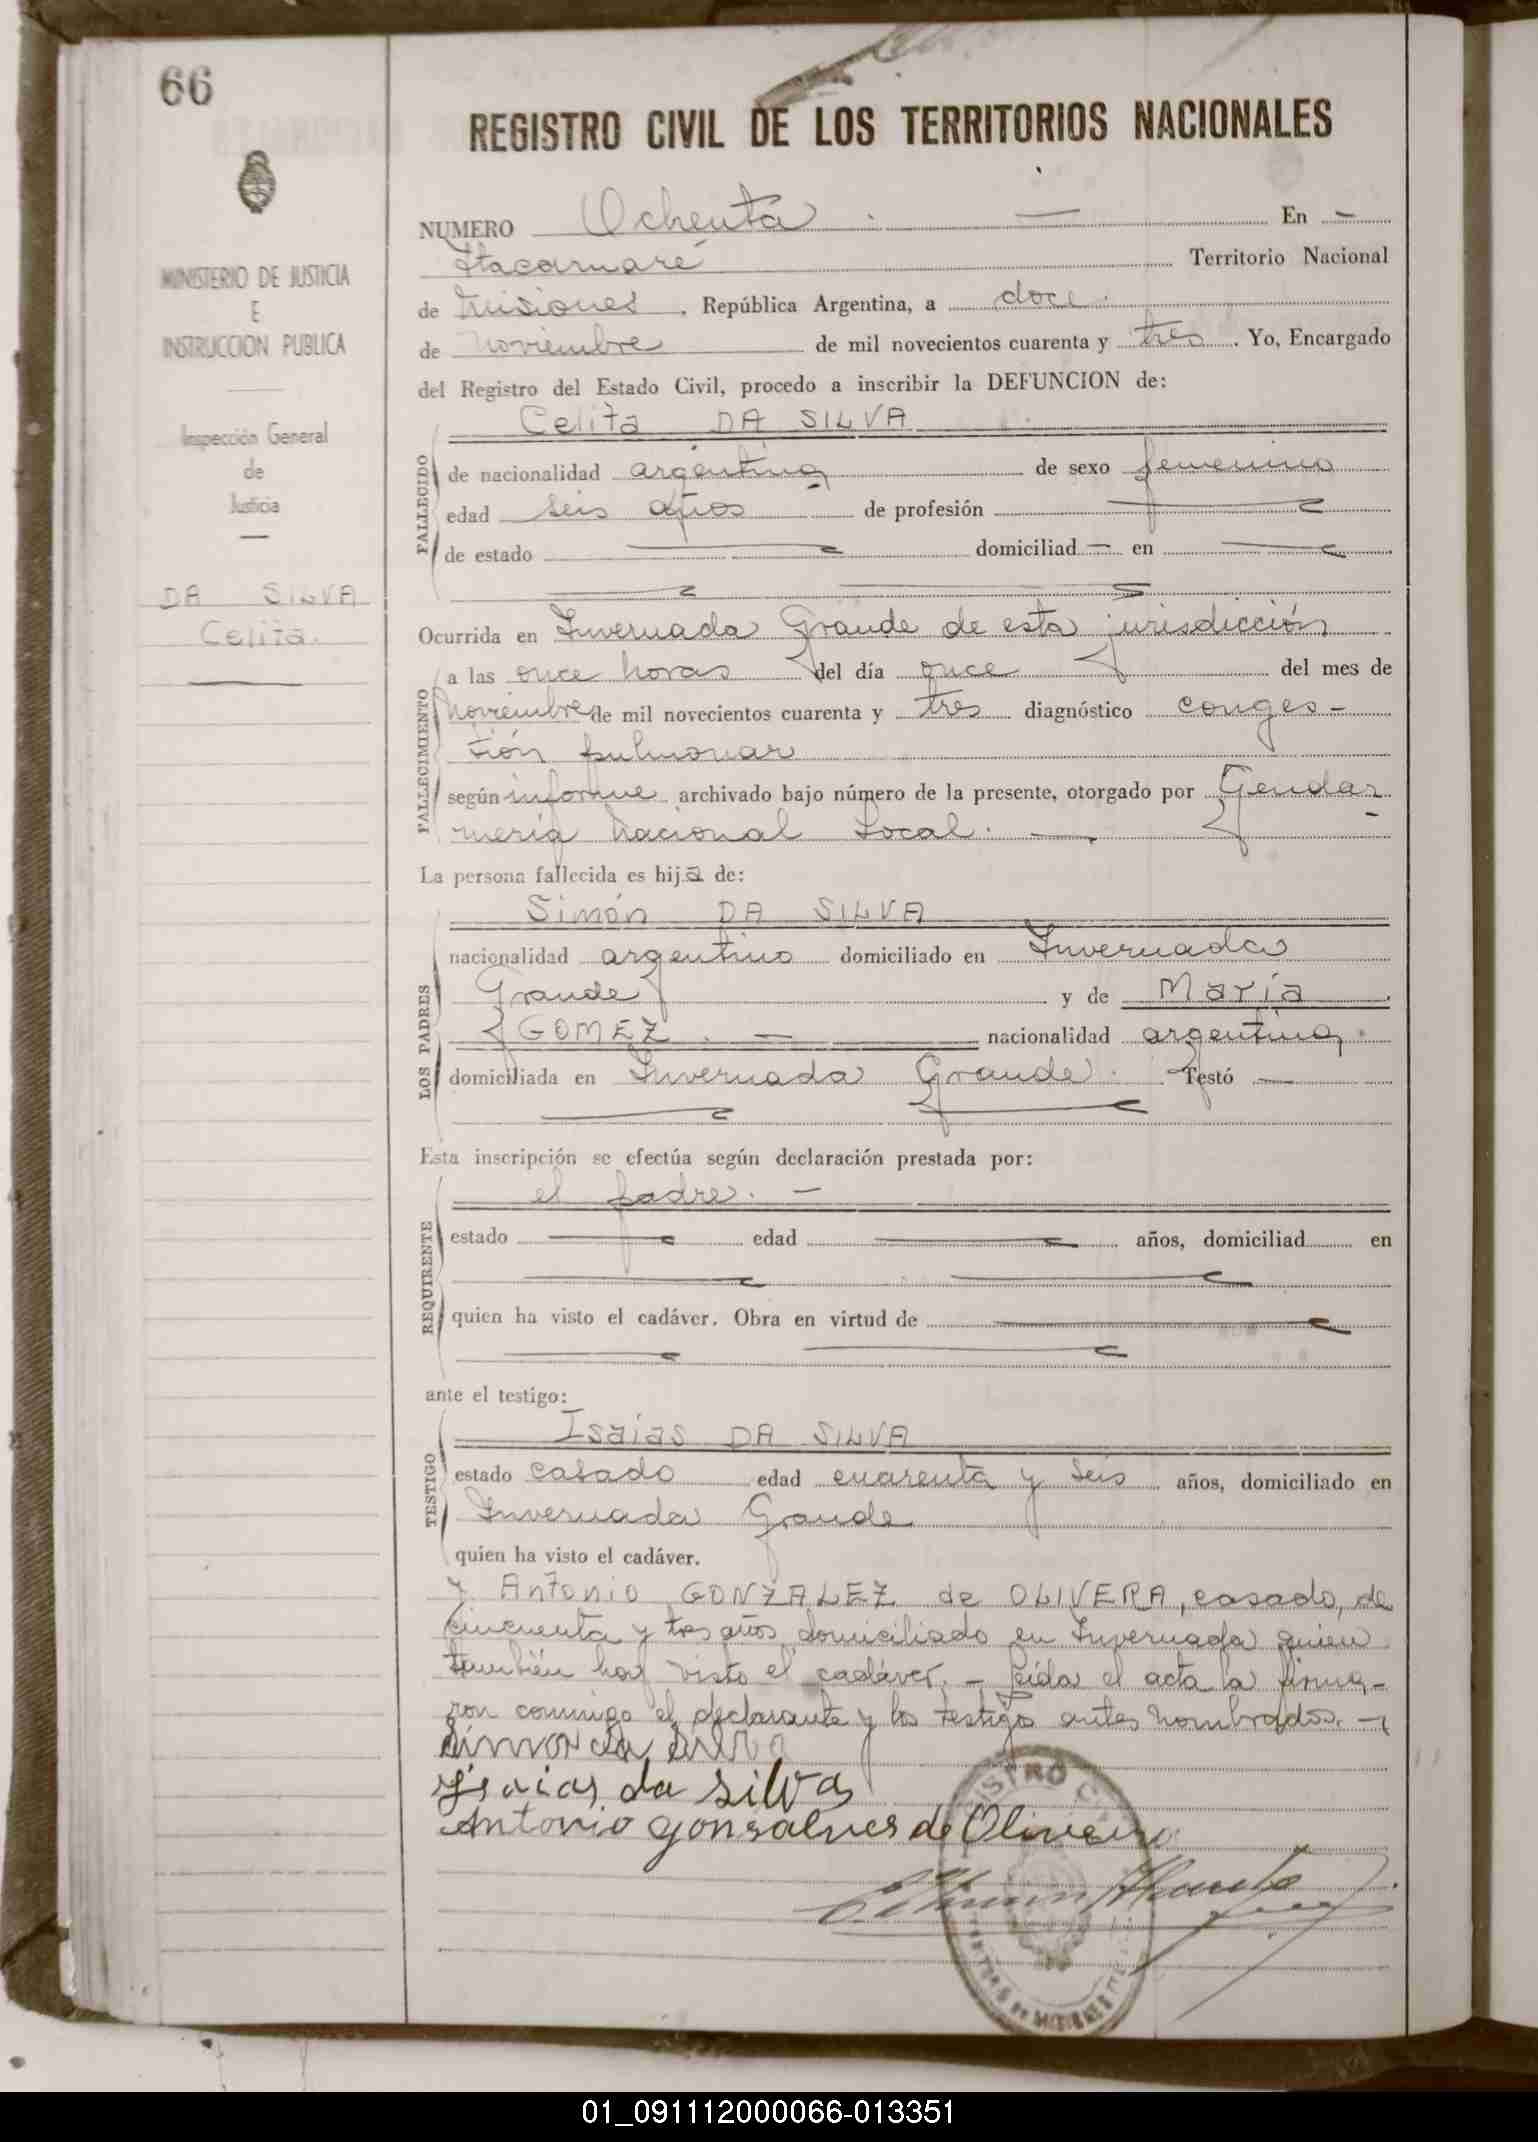 66
REGISTRO CIVIL DE LOS TERRITORIOS NACIONALES
MINISTERIO DE JUSTICIA
E
INSTRUCCION PUBLICA
Inspección General
de
Justicia
DA SILVA
Celita.
NUMERO Ochenta . — En -
Itacaruaré Territorio Nacional
de Misiones , República Argentina, a doce.
de noviembre de mil novecientos cuarenta y tres . Yo, Encargado
del Registro del Estado Civil, procedo a inscribir la DEFUNCION de:
Celita DA SILVA
FALLECIDO
de nacionalidad argentina de sexo femenino
edad seis años de profesión —
de estado — domiciliad — en —
Ocurrida en Invernada Grande de esta jurisdicción
FALLECIMIENTO
a las once horas del día once del mes de
noviembre de mil novecientos cuarenta y tres diagnóstico conges-
tión pulmonar
según informe archivado bajo número de la presente, otorgado por Gendar-
mería Nacional Local. —
La persona fallecida es hija de:
LOS PADRES
Simón DA SILVA
nacionalidad argentino domiciliado en Invernada
Grande y de María
GOMEZ . — nacionalidad argentina.
domiciliada en Invernada Grande. Testó —
Esta inscripción se efectúa según declaración prestada por:
REQUIRENTE
el padre. —
estado — edad — años, domiciliad en
quien ha visto el cadáver. Obra en virtud de —
ante el testigo:
TESTIGO
Isaías DA SILVA
estado casado edad cuarenta y seis años, domiciliado en
Invernada Grande
quien ha visto el cadáver.
y Antonio GONZALEZ de OLIVERA, casado, de
cincuenta y tres años, domiciliado en Invernada quien
también ha visto el cadáver. - Leída el acta la firma-
ron conmigo el declarante y los testigos antes nombrados. -
Simon da Silva
Isaias da Silva
Antonio gonsalves de Oliveira
REGISTRO
01_091112000066-013351